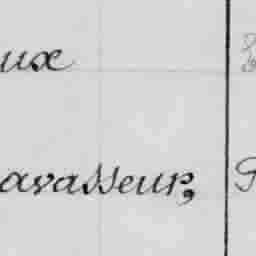 ux
avasseur,